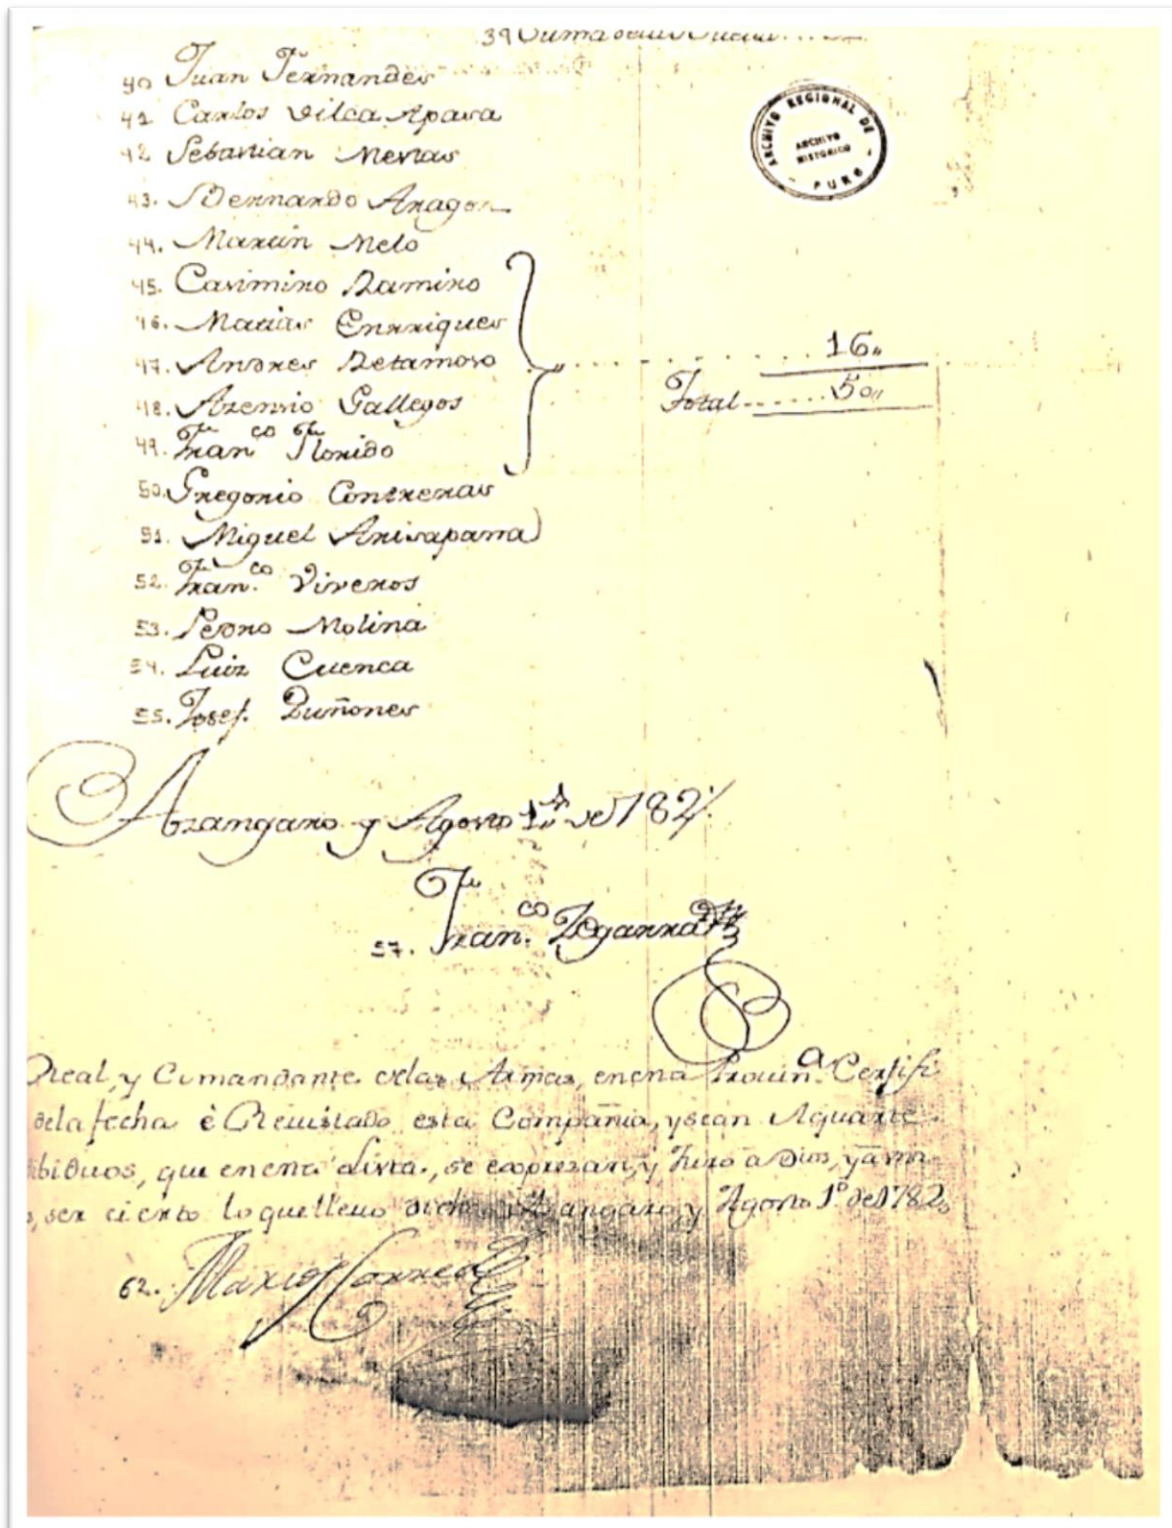 39 Suma
40 Juan Fernandes
41 Carlos Vilca Apasa
42 Sebastian Mesias
43. Bernardo Aragon
44. Martin Melo
45. Casimiro Ramiro
46. Matias Enrriques
47. Andres Retamoso
48. Azensio Gallegos
49. Fran.co Florido
50. Gregorio Contreras
51. Miguel Arisaparra
52. Fran.co Viveros
53. Pedro Molina
54. Luiz Cuenca
55. Josef. Quiñones
16„
Total ...... 50„
ARCHIVO REGIONAL DE PUNO
ARCHIVO HISTORICO
Azangaro y Agosto 1º de 1782
57. Fran.co
Real, y Comandante delas Armas, enesta Provin.a Certifi
dela fecha è Revistado esta Compañia, y sean Aquarte
ibiduos, que enesta Lista, se expresan, y Juro a Dios, y a mi
ser cierto lo que llevo dicho Azangaro, y Agosto 1º de 1782
62.